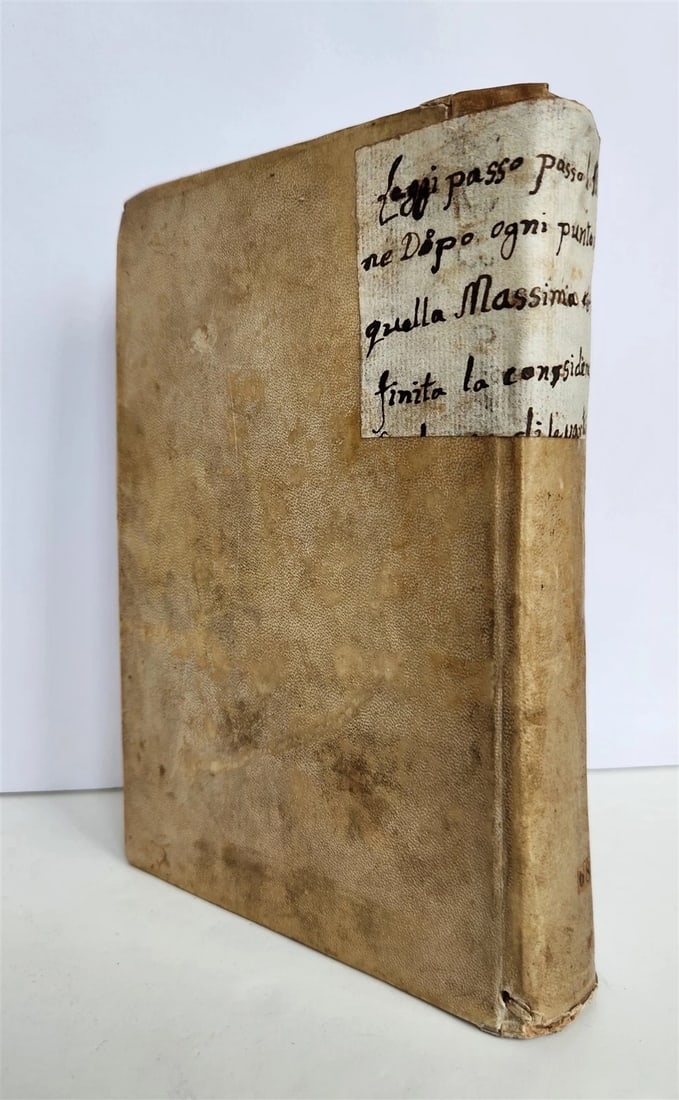 Leggi passo passo
ne Dopo ogni punto
quella Massima
finita la conside
di levar
68